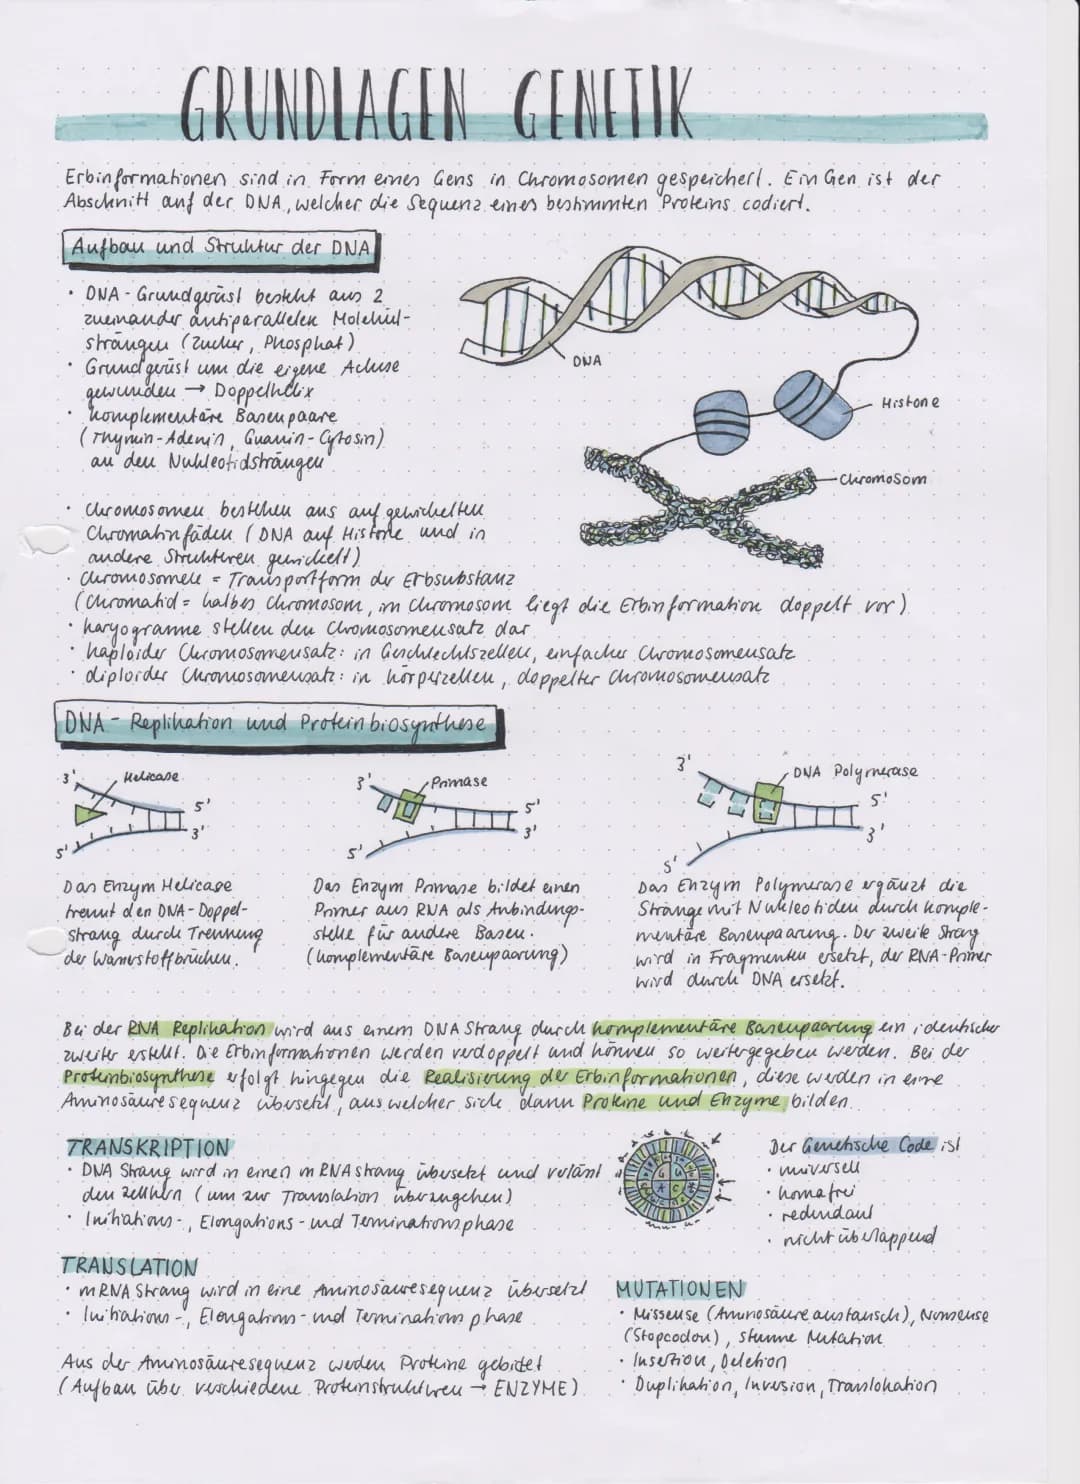 GRUNDLAGEN GENETIK
Erbinformationen sind in Form eines Gens in Chromosomen gespeichert. Ein Gen ist der
Abschnitt auf der DNA, welcher die Sequenz eines bestimmten Proteins codiert.
Aufbau und Struktur der DNA
• DNA-Grundgerüst besteht aus 2
zueinander antiparallelen Molekül-
strängen (Zucker, Phosphat)
• Grundgerüst um die eigene Achse
gewunden → Doppelhelix
• komplementäre Basenpaare
(Thymin-Adenin, Guanin-Cytosin)
an den Nukleotidsträngen
DNA
Histone
Chromosom
• Chromosomen bestehen aus aufgewickelten
Chromatinfäden (DNA auf Histone und in
andere Strukturen gewickelt)
• Chromosomen = Transportform der Erbsubstanz
(Chromatid = halbes Chromosom, im Chromosom liegt die Erbinformation doppelt vor)
• Karyogramme stellen den Chromosomensatz dar
• haploider Chromosomensatz: in Geschlechtszellen, einfacher Chromosomensatz
• diploider Chromosomensatz: in Körperzellen, doppelter Chromosomensatz
DNA-Replikation und Proteinbiosynthese
3' Helicase
5'
3'
5'
Das Enzym Helicase
trennt den DNA-Doppel-
strang durch Trennung
der Wasserstoffbrücken.
3' Primase
5'
3'
5'
Das Enzym Primase bildet einen
Primer aus RNA als Anbindungs-
stelle für andere Basen.
(komplementäre Basenpaarung)
3' DNA Polymerase
5'
3'
5'
Das Enzym Polymerase ergänzt die
Stränge mit Nukleotiden durch komple-
mentäre Basenpaarung. Der zweite Strang
wird in Fragmenten ersetzt, der RNA-Primer
wird durch DNA ersetzt.
Bei der RNA Replikation wird aus einem DNA Strang durch komplementäre Basenpaarung ein identischer
zweiter erstellt. Die Erbinformationen werden verdoppelt und können so weitergegeben werden. Bei der
Proteinbiosynthese erfolgt hingegen die Realisierung der Erbinformationen, diese werden in eine
Aminosäuresequenz übersetzt, aus welcher sich dann Proteine und Enzyme bilden.
TRANSKRIPTION
• DNA Strang wird in einen mRNA strang übersetzt und verlässt
den Zellkern (um zur Translation überzugehen)
• Initiations-, Elongations- und Terminationsphase
G U A C
Der Genetische Code ist
• universell
• komafrei
• redundant
• nicht überlappend
TRANSLATION
• mRNA Strang wird in eine Aminosäuresequenz übersetzt
• Initiations-, Elongations- und Terminationsphase
Aus der Aminosäuresequenz werden Proteine gebildet
(Aufbau über verschiedene Proteinstrukturen → ENZYME)
MUTATIONEN
• Missense (Aminosäureaustausch), Nonsense
(Stopcodon), stumme Mutation
• Insertion, Deletion
• Duplikation, Inversion, Translokation